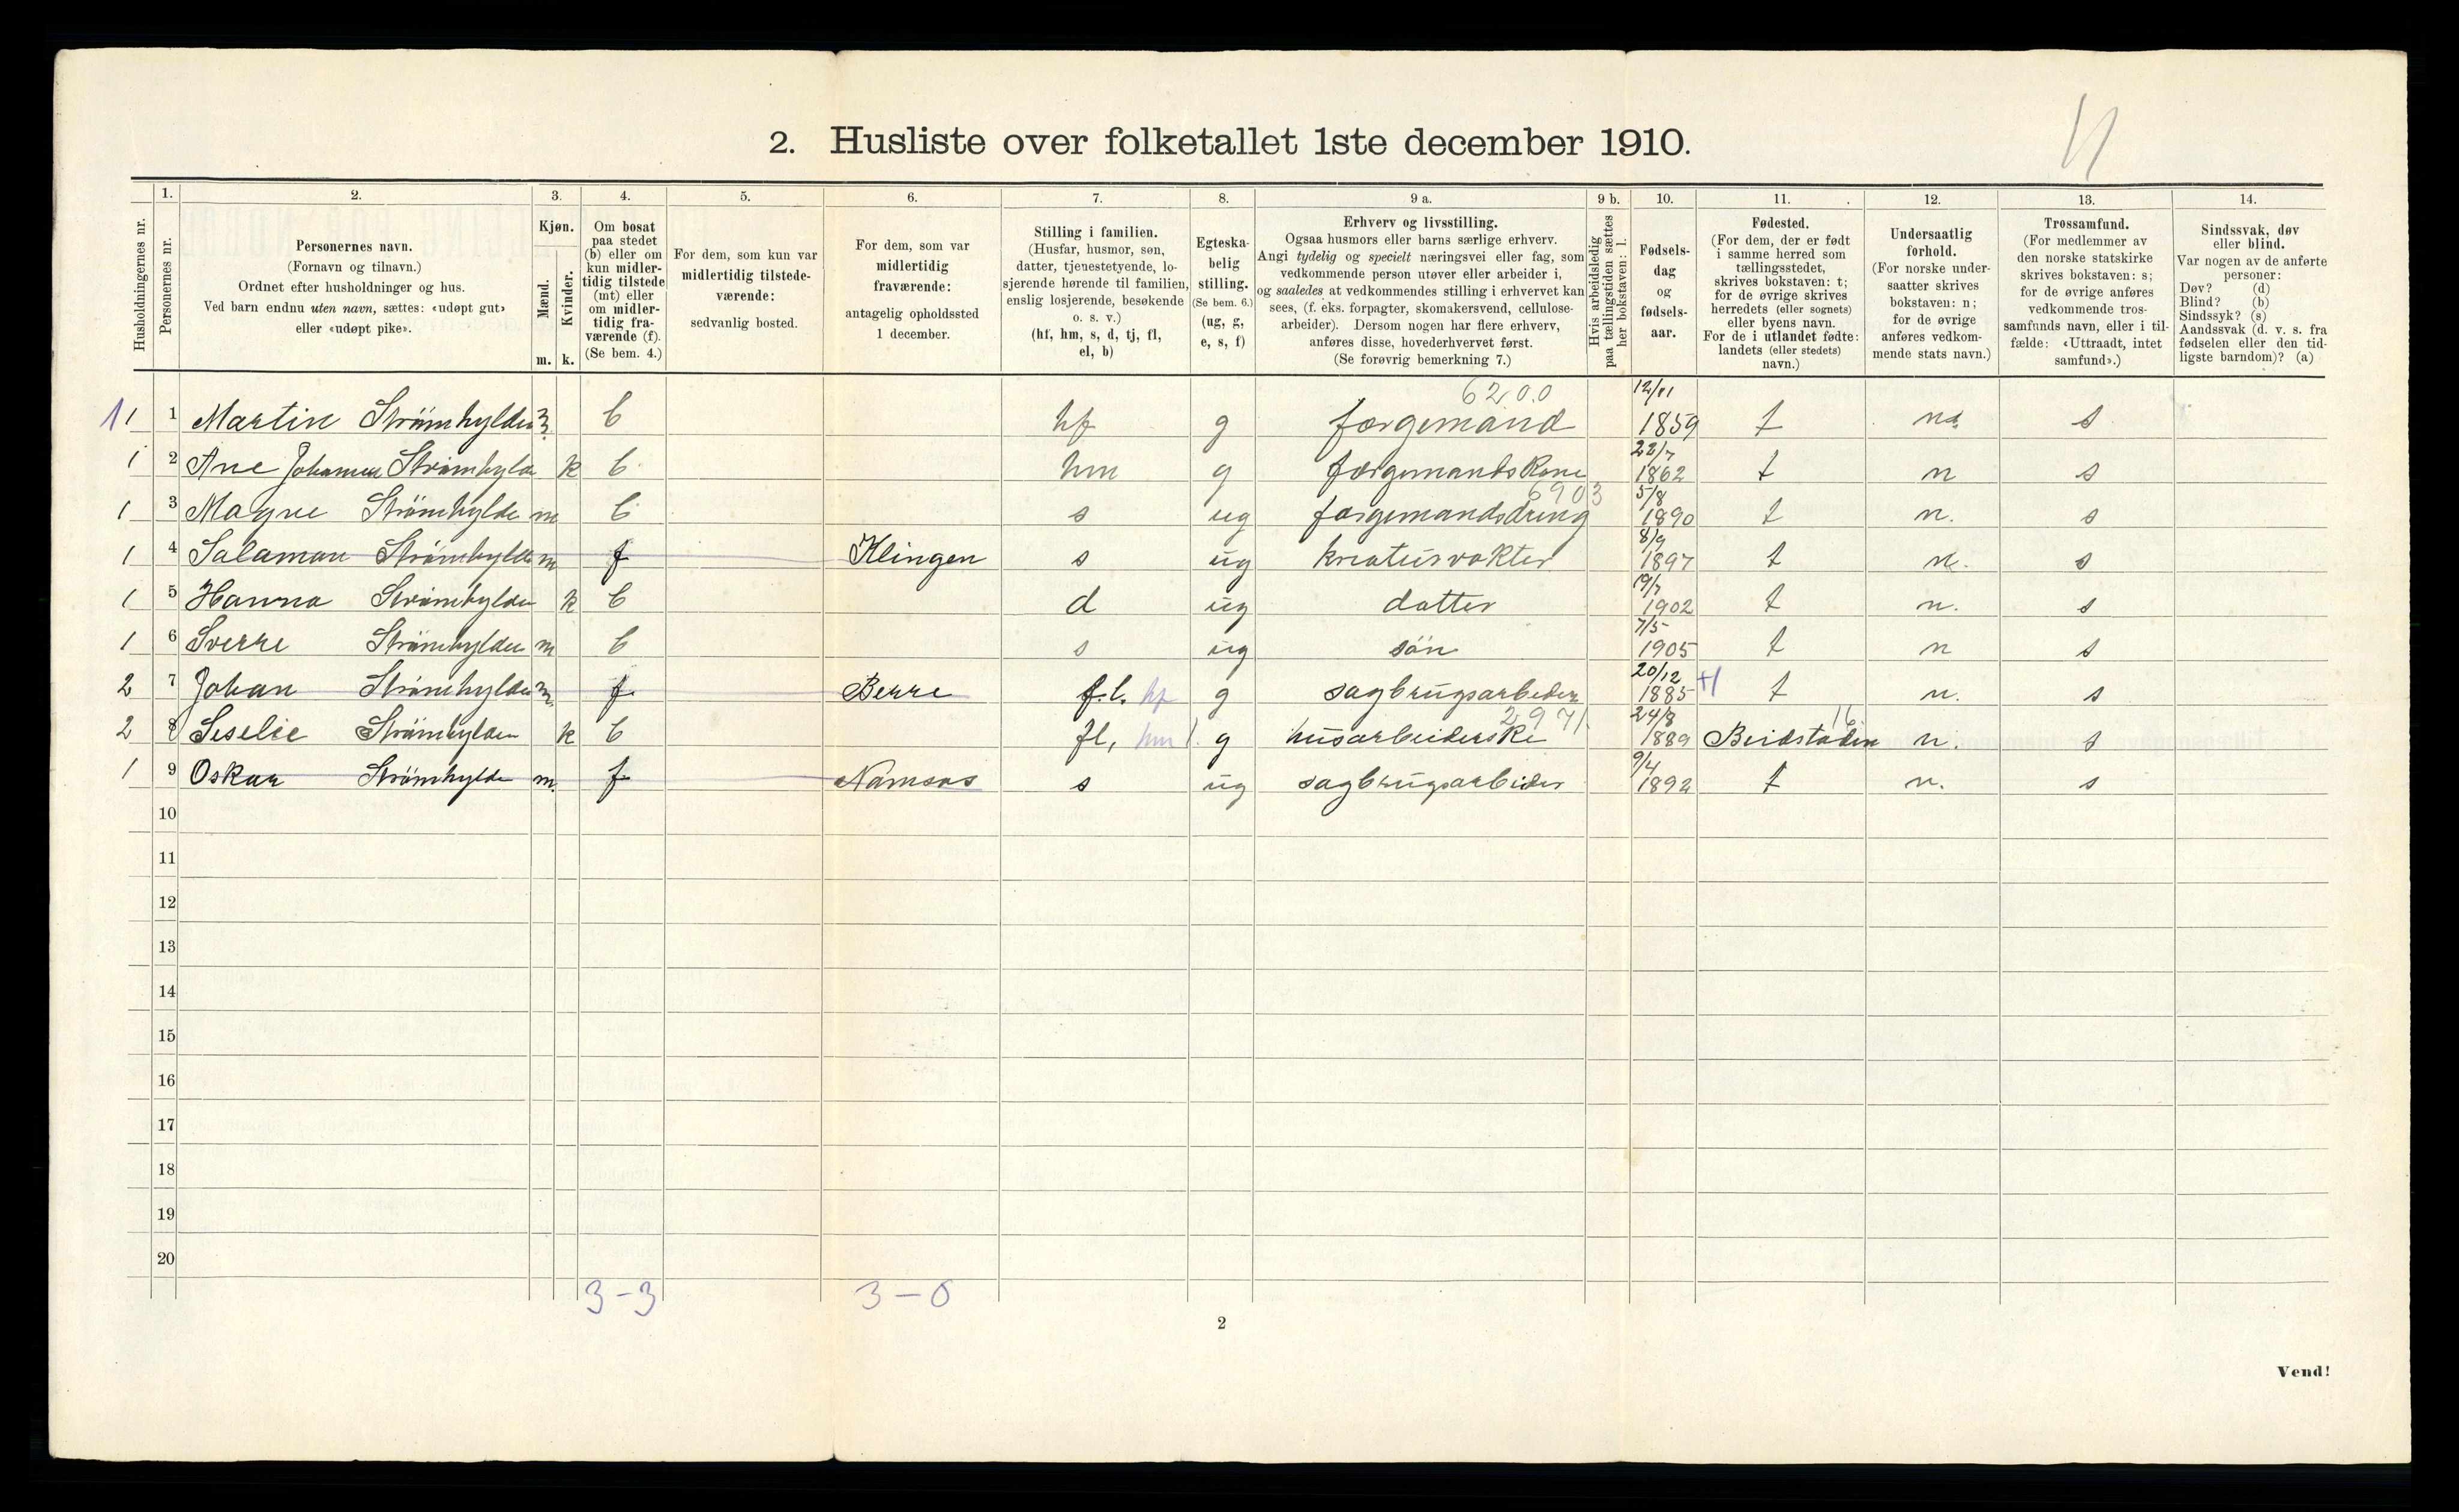 2. Husliste over folketallet 1ste december 1910.
Husholdningernes nr.
1.
Personernes nr.
2.
Personernes navn.
(Fornavn og tilnavn.)
Ordnet efter husholdninger og hus.
Ved barn endnu uten navn, sættes: «udøpt gut»
eller «udøpt pike».
3.
Kjøn.
Mænd.
Kvinder.
m. k.
4.
Om bosat
paa stedet
(b) eller om
kun midler-
tidig tilstede
(mt) eller
om midler-
tidig fra-
værende (f).
(Se bem. 4.)
5.
For dem, som kun var
midlertidig tilstede-
værende:
sedvanlig bosted.
6.
For dem, som var
midlertidig
fraværende:
antagelig opholdssted
1 december.
7.
Stilling i familien.
(Husfar, husmor, søn,
datter, tjenestetyende, lo-
sjerende hørende til familien,
enslig losjerende, besøkende
o. s. v.)
(hf, hm, s, d, tj, fl,
el, b)
8.
Egteska-
belig
stilling.
(Se bem. 6.)
(ug, g,
e, s, f)
9 a.
Erhverv og livsstilling.
Ogsaa husmors eller barns særlige erhverv.
Angi tydelig og specielt næringsvei eller fag, som
vedkommende person utøver eller arbeider i,
og saaledes at vedkommendes stilling i erhvervet kan
sees, (f. eks. forpagter, skomakersvend, cellulose-
arbeider). Dersom nogen har flere erhverv,
anføres disse, hovederhvervet først.
(Se forøvrig bemerkning 7.)
9 b.
Hvis arbeidsledig
paa tællingstiden sættes
her bokstaven: l.
10.
Fødsels-
dag
og
fødsels-
aar.
11.
Fødested.
(For dem, der er født
i samme herred som
tællingsstedet,
skrives bokstaven: t;
for de øvrige skrives
herredets (eller sognets)
eller byens navn.
For de i utlandet fødte:
landets (eller stedets)
navn.)
12.
Undersaatlig
forhold.
(For norske under-
saatter skrives
bokstaven: n;
for de øvrige
anføres vedkom-
mende stats navn.)
13.
Trossamfund.
(For medlemmer av
den norske statskirke
skrives bokstaven: s;
for de øvrige anføres
vedkommende tros-
samfunds navn, eller i til-
fælde: «Uttraadt, intet
samfund».)
14.
Sindssvak, døv
eller blind.
Var nogen av de anførte
personer:
Døv? (d)
Blind? (b)
Sindssyk? (s)
Aandssvak (d. v. s. fra
fødselen eller den tid-
ligste barndom)? (a)
6200
1 1 1 Martin Strömhylden m b hf g færgemand 12/11 1859 t n s
1 2 Ane Johanna Strömhylden k b hm g færgemandskone 22/7 1862 t n s
6903
1 3 Magne Strömhylde m b s ug færgemandsdreng 5/8 1890 t n. s
1 4 Salamon Strömhylden m f Klingen s ug kreaturvokter 8/9 1897 t n. s
1 5 Hanna Strömhylden k b d ug datter 19/7 1902 t n. s
1 6 Sverre Strömhylden m b s ug sön 7/5 1905 t n s
2 7 Johan Strömhylden m f Berre f.l. hf g sagbrugsarbeider 20/12 1885 t n. s
2971 16
2 8 Seselie Strömhylden k b fl, hm g husarbeiderske 24/8 1889 Beidstaden n. s
1 9 Oskar Strömhylde m. f Namsos s ug sagbrugsarbeider 9/4 1892 t n. s
10
11
12
13
14
15
16
17
18
19
20
3-3 3-0
2
Vend!